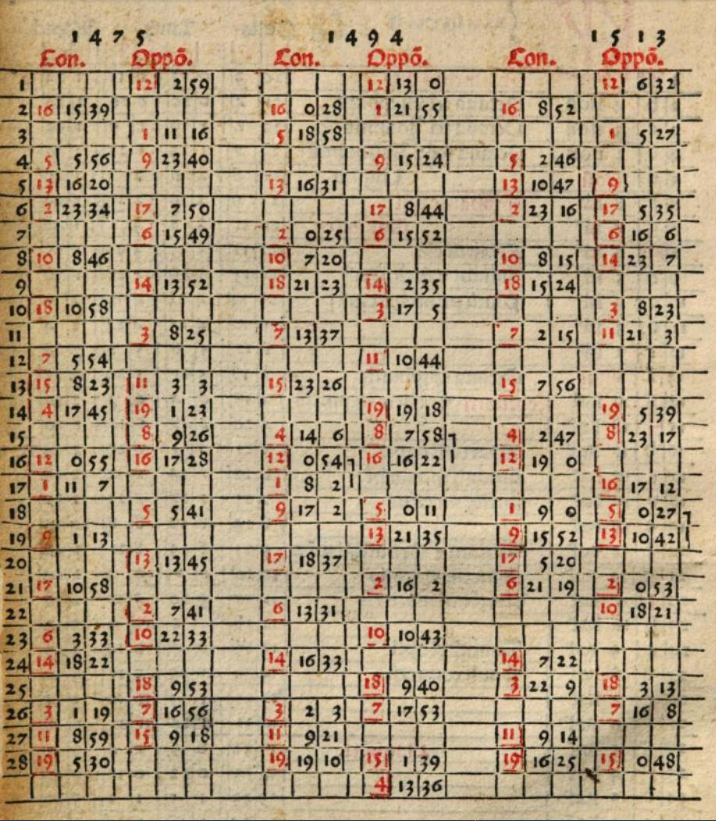 1475 1494 1513
Con. Oppō. Con. Oppō. Con. Oppō.
1 12 2 59 12 13 0 12 6 32
2 16 15 39 16 0 28 1 21 55 16 8 52
3 1 11 16 5 18 58 1 5 27
4 5 5 56 9 23 40 9 15 24 5 2 46
5 13 16 20 13 16 31 13 10 47 9
6 2 23 34 17 7 50 17 8 44 2 23 16 17 5 35
7 6 15 49 2 0 25 6 15 52 6 16 6
8 10 8 46 10 7 20 10 8 15 14 23 7
9 14 13 52 18 21 23 14 2 35 18 15 24
10 18 10 58 3 17 5 3 8 23
11 3 8 25 7 13 37 7 2 15 11 21 3
12 7 5 54 11 10 44
13 15 8 23 11 3 3 15 23 26 15 7 56
14 4 17 45 19 1 23 19 19 18 19 5 39
15 8 9 26 4 14 6 8 7 58 4 2 47 8 23 17
16 12 0 55 16 17 28 12 0 54 16 16 22 12 19 0
17 1 11 7 1 8 2 16 17 12
18 5 5 41 9 17 2 5 0 11 1 9 0 5 0 27
19 9 1 13 13 21 35 9 15 52 13 10 42
20 13 13 45 17 18 37 17 5 20
21 17 10 58 2 16 2 6 21 19 2 0 53
22 2 7 41 6 13 31 10 18 21
23 6 3 33 10 22 33 10 10 43
24 14 18 22 14 16 33 14 7 22
25 18 9 53 18 9 40 3 22 9 18 3 13
26 3 1 19 7 16 56 3 2 3 7 17 53 7 16 8
27 11 8 59 15 9 18 11 9 21 11 9 14
28 19 5 30 19 19 10 15 1 39 19 16 25 15 0 48
4 13 36